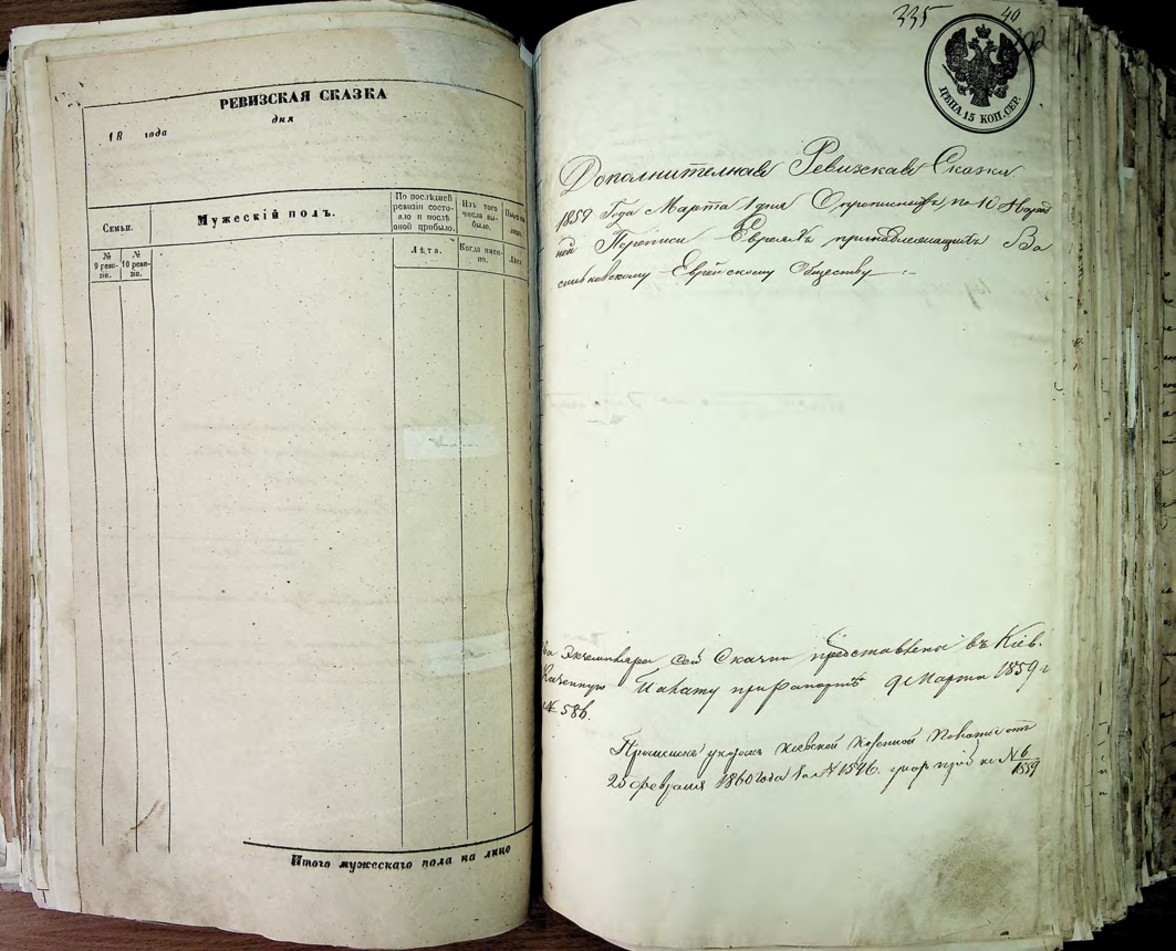 РЕВИЗСКАЯ СКАЗКА
18 года дня
Семьи.
Мужескій полъ.
По послѣдней ревизіи состояло и послѣ оной прибыло.
Изъ того числа выбыло.
№ 9 ревизіи.
№ 10 ревизіи.
Лѣта.
Когда именно.
Лѣта
Итого мужескаго пола на лицо
335 40
ЦѢНА 15 КОП. СЕР.
Дополнителная Ревизская Сказка
1859 Года Марта 1 дня по 10 Народ
ной Переписи Евреяхъ принадлежащихъ Ва
сильковскому Еврейскому Обществу
Экземпляра сей Сказки представлены въ Кіев.
Казенную Палату при Рапортѣ 9 Марта 1859 г
№ 586.
указом Киевской Казенной Палаты от
25 февраля 1860 года за № 1546. № 6
1859